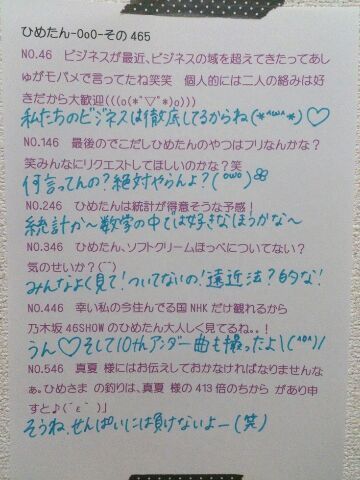 ひめたん-OoO-その465
NO.46　ビジネスが最近、ビジネスの域を超えてきたってあし
ゅがモバメで言ってたね笑笑　個人的には二人の絡みは好
きだから大歓迎(((o(*ﾟ▽ﾟ*)o)))
私たちのビジネスは徹底してるからね(*^ω^*)♡
NO.146　最後のでこだしひめたんのやつはフリなんかな？
笑みんなにリクエストしてほしいのかな？笑
何言ってんの？絶対やらんよ？(˙ω˙)
NO.246　ひめたんは統計が得意そうな予感！
統計か〜数学の中では好きなほうかな〜
NO.346　ひめたん、ソフトクリームほっぺについてない？
気のせいか？(⌒)
みんなよく見て！ついてないの！遠近法？的な！
NO.446　幸い私の今住んでる国NHKだけ観れるから
乃木坂46SHOWのひめたん大人しく見てるね。。！
うん♡そして10thアンダー曲も撮ったよ\(^o^)/
NO.546　真夏 様にはお伝えしておかなければなりませんな
ぁ。ひめさま の釣りは、真夏 様の413倍のちから があり申
すと♪(´ε｀ )」
そうね、せんぱいには負けないよー(笑)